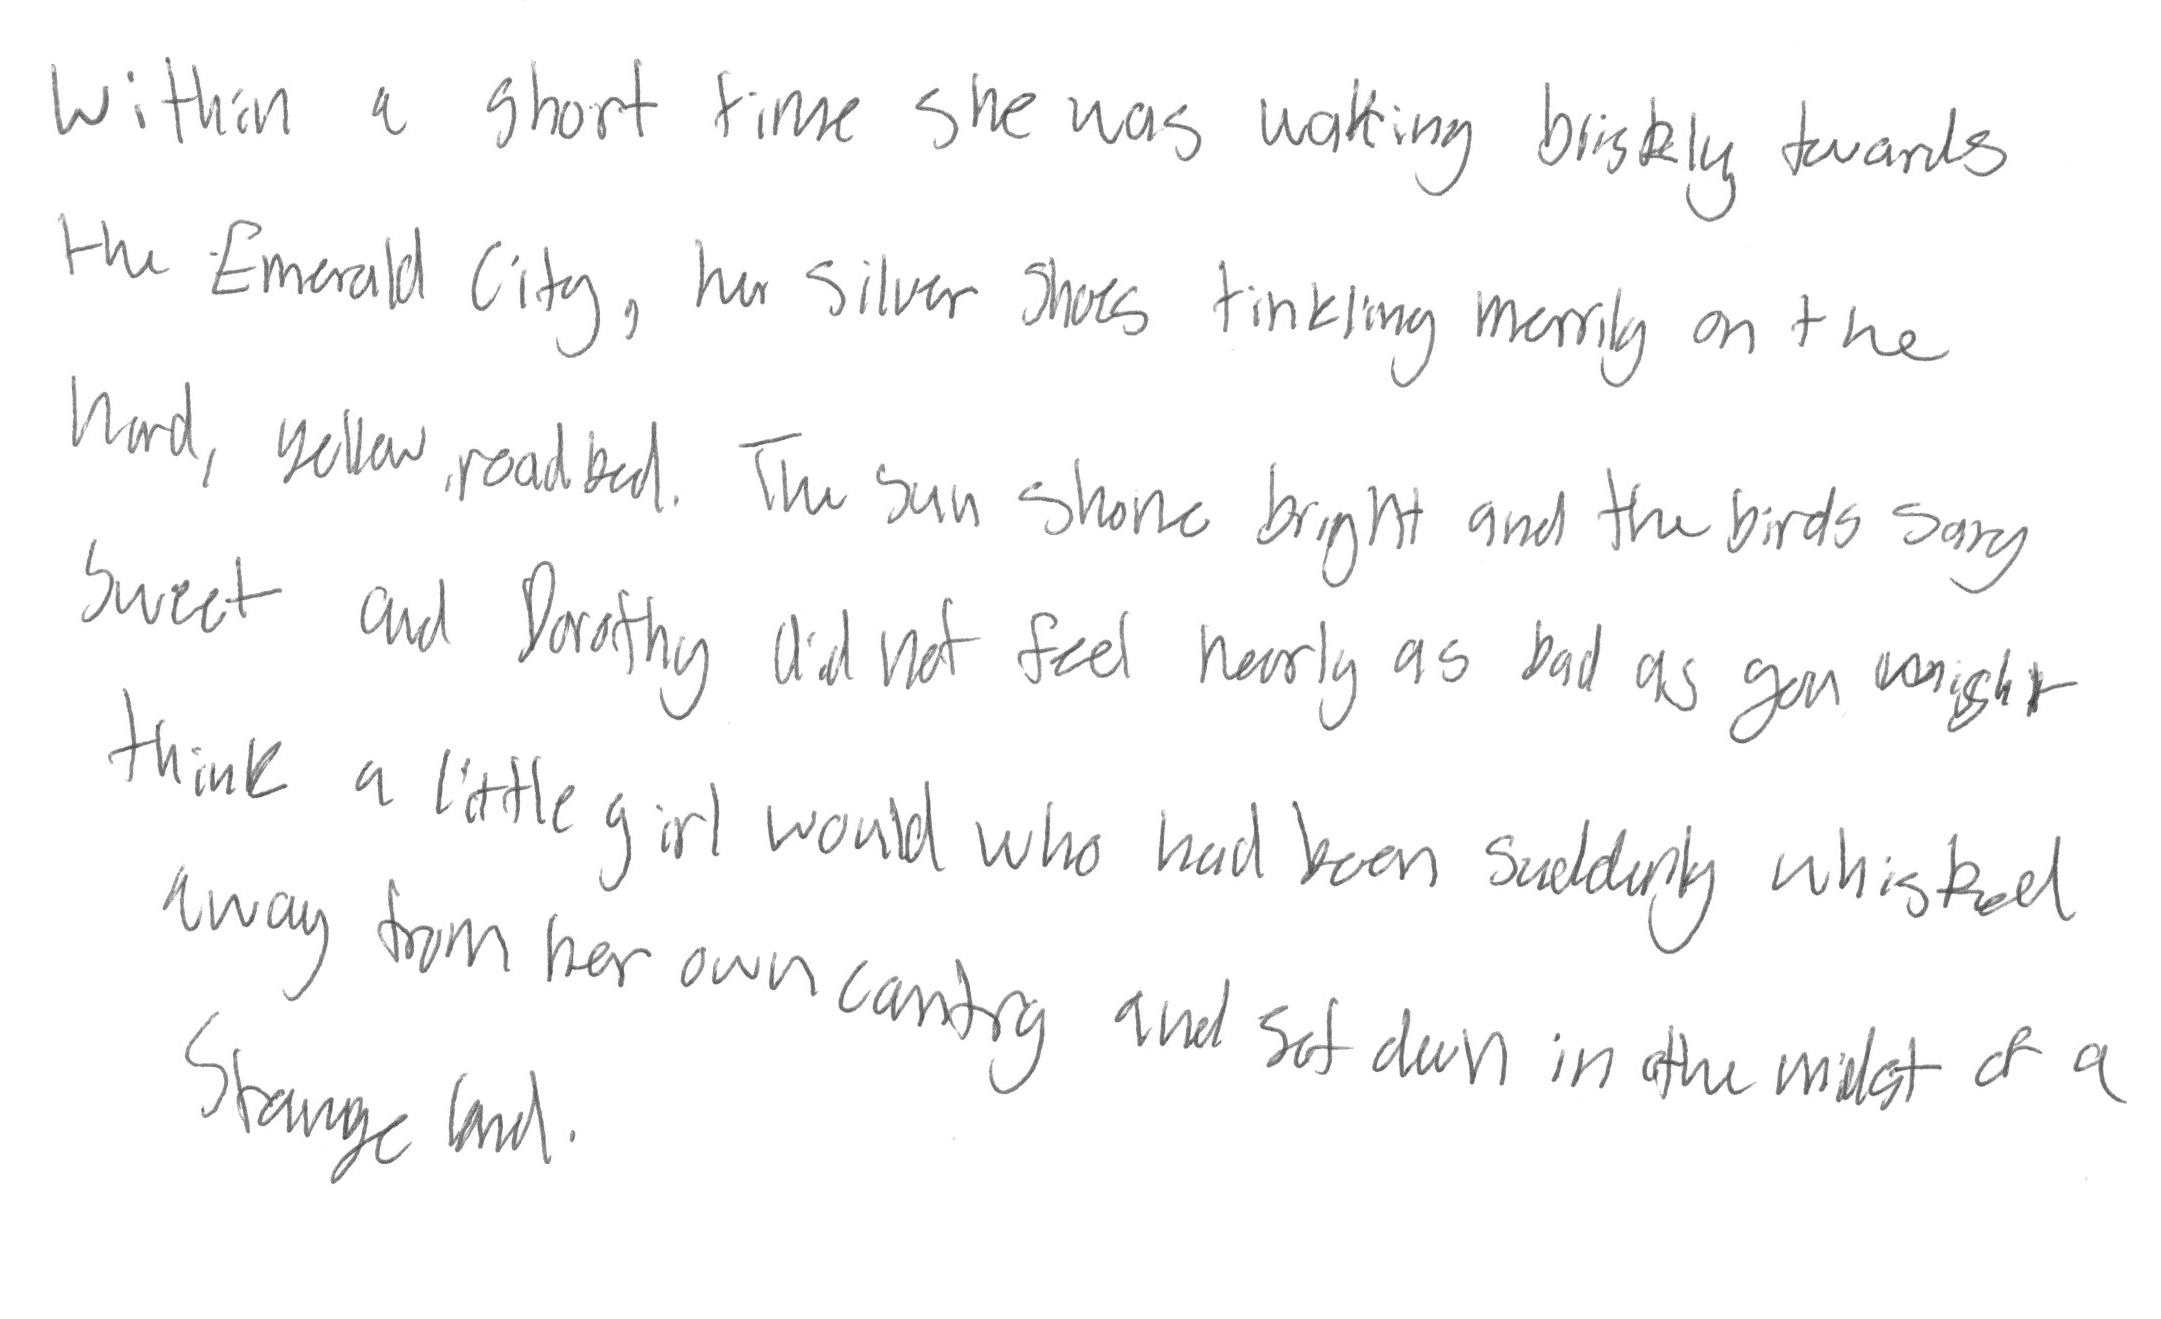 Within a short time she was walking briskly towards
the Emerald City, her silver shoes tinkling merrily on the
hard, yellow roadbed. The sun shone bright and the birds sang
sweet and Dorothy did not feel nearly as bad as you might
think a little girl would who had been suddenly whisked
away from her own country and set down in the midst of a
strange land.